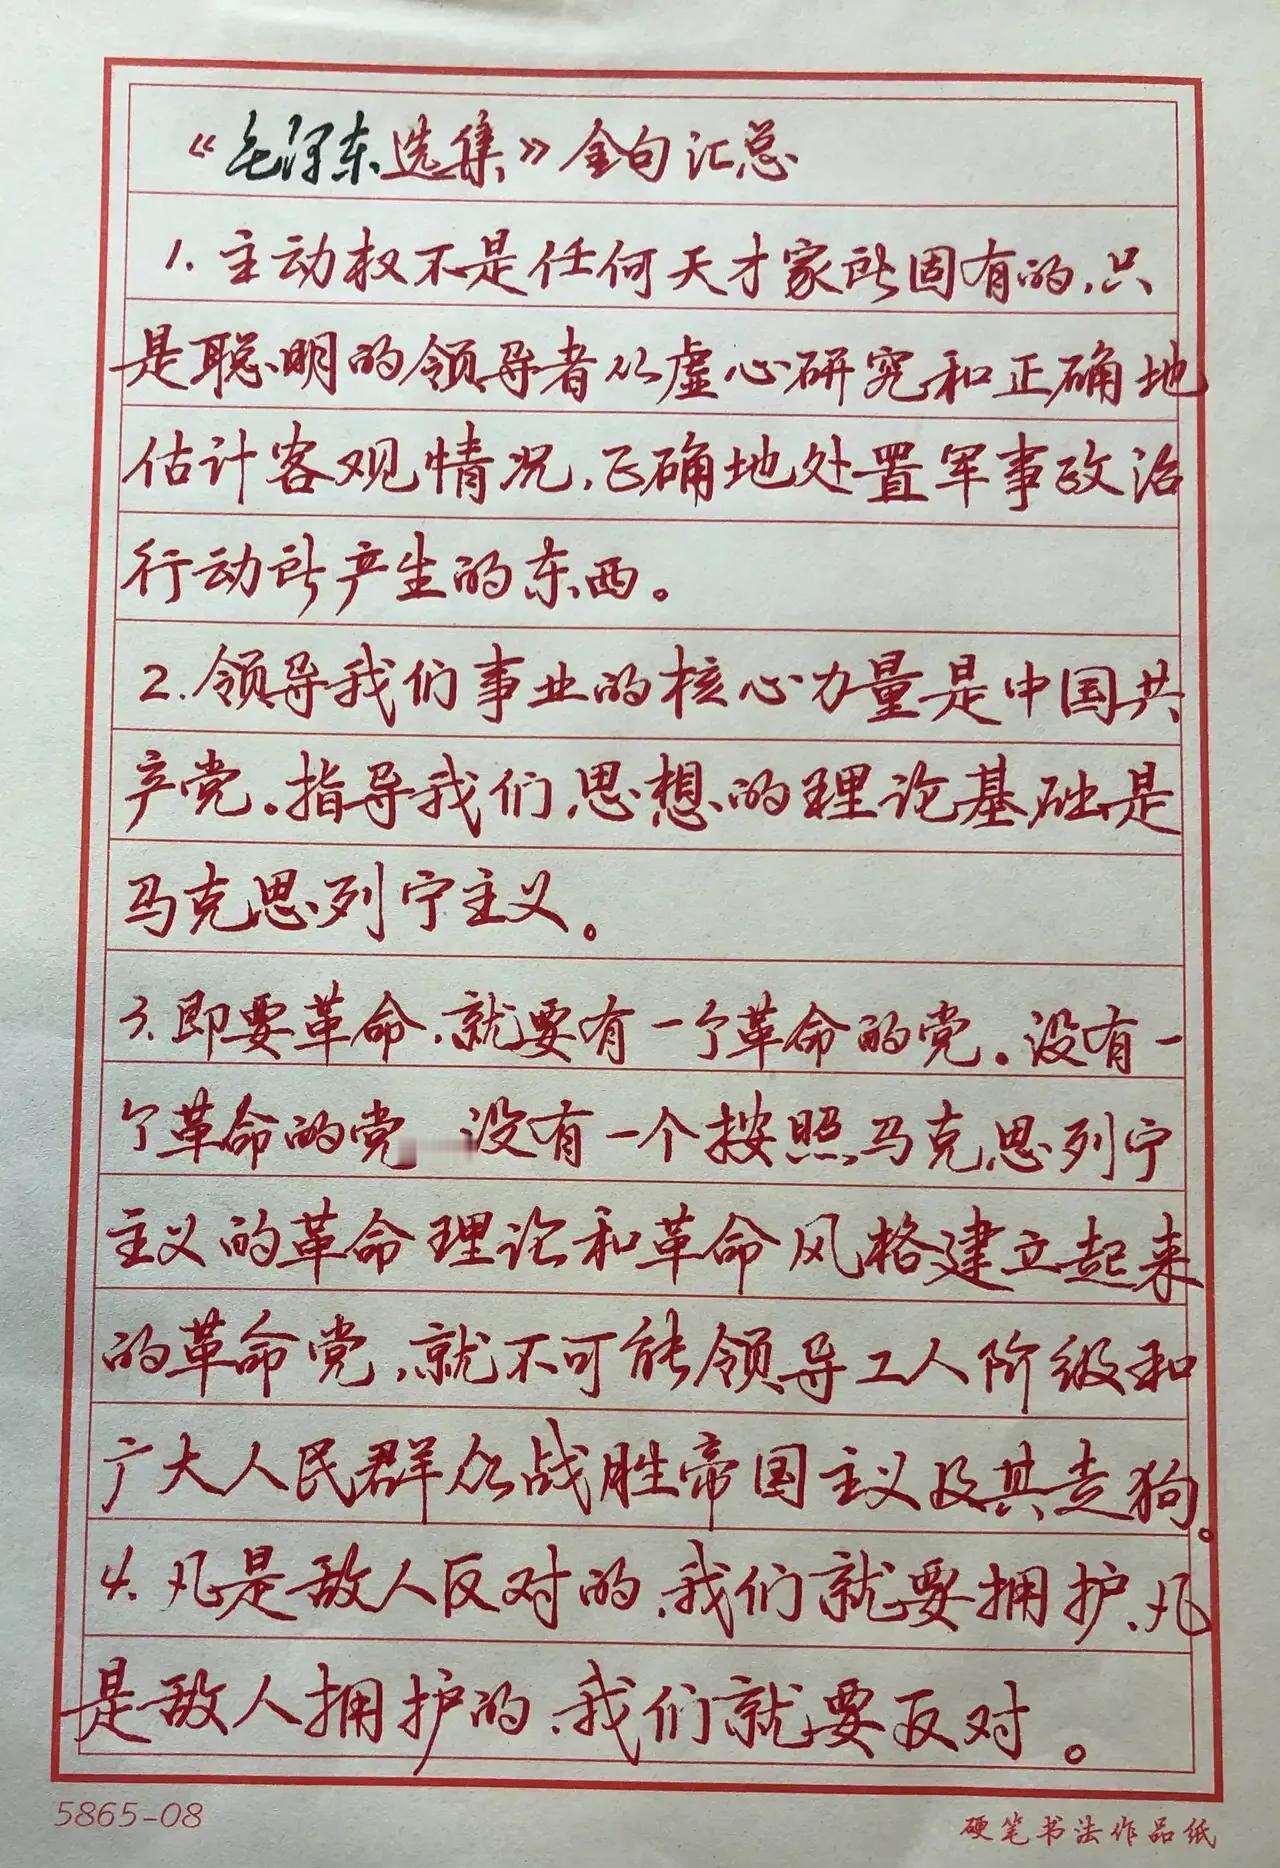 《毛泽东选集》金句汇总
1.主动权不是任何天才家所固有的,只
是聪明的领导者以虚心研究和正确地
估计客观情况,正确地处置军事政治
行动所产生的东西。
2.领导我们事业的核心力量是中国共
产党。指导我们思想的理论基础是
马克思列宁主义。
3.即要革命,就要有一个革命的党。没有一
个革命的党 没有一个按照马克思列宁
主义的革命理论和革命风格建立起来
的革命党,就不可能领导工人阶级和
广大人民群众战胜帝国主义及其走狗。
4.凡是敌人反对的,我们就要拥护,凡
是敌人拥护的,我们就要反对。
5865-08
硬笔书法作品纸